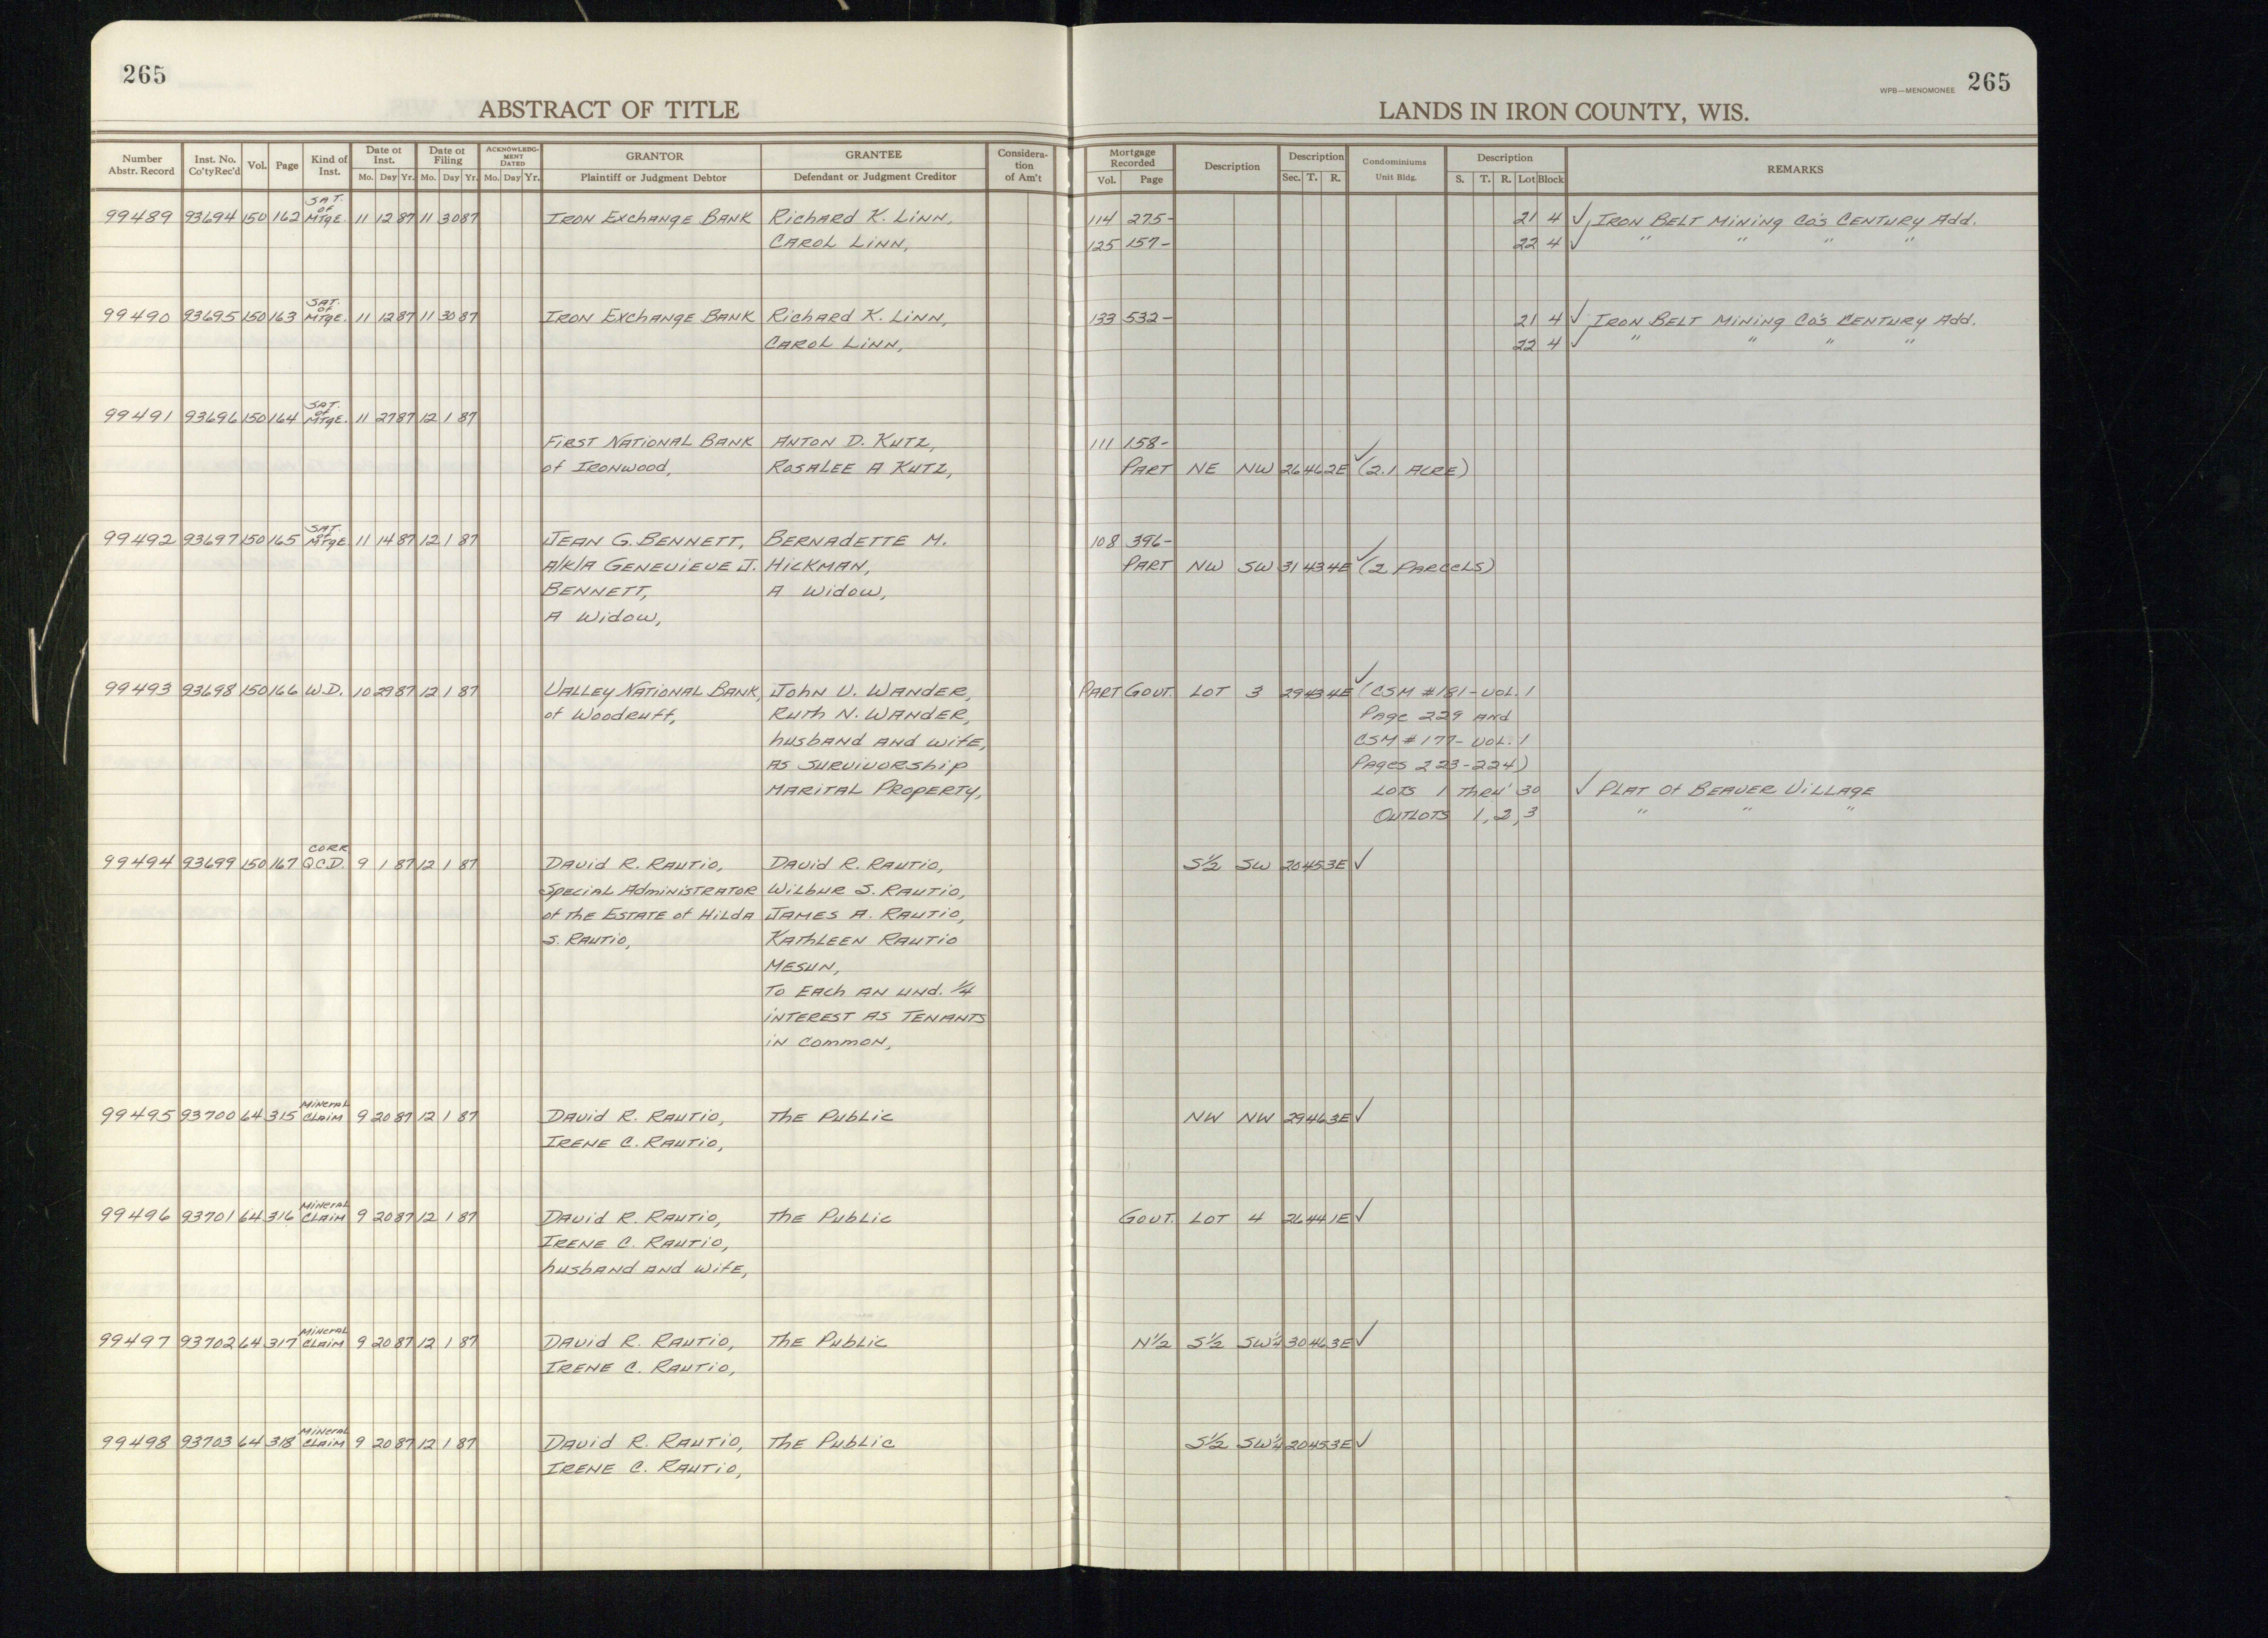 265
265
WPB—MENOMONEE
ABSTRACT OF TITLE
LANDS IN IRON COUNTY, WIS.
Number Abstr. Record | Inst. No. Co'ty Rec'd | Vol. | Page | Kind of Inst. | Date of Inst. Mo. Day Yr. | Date of Filing Mo. Day Yr. | ACKNOWLEDGMENT DATED Mo. Day Yr. | GRANTOR Plaintiff or Judgment Debtor | GRANTEE Defendant or Judgment Creditor | Consideration of Am't | Mortgage Recorded Vol. Page | Description | Description Sec. T. R. | Condominiums Unit Bldg. | Description S. T. R. Lot Block | REMARKS
SAT. of
99489 93694 150 162 MTgE. 11 12 87 11 30 87 IRON EXCHANGE BANK Richard K. LiNN, 114 275- 21 4 ✓ IRON BELT MiNiNg Co's CENTURY Add.
CAROL LiNN, 125 157- 22 4 ✓ " " " "
SAT. of
99490 93695 150 163 MTgE. 11 12 87 11 30 87 IRON EXCHANGE BANK Richard K. LiNN, 133 532- 21 4 ✓ IRON BELT MiNiNg Co's CENTURY Add.
CAROL LiNN, 22 4 ✓ " " " "
SAT. of
99491 93696 150 164 MTgE. 11 27 87 12 1 87
FIRST NATIONAL BANK ANTON D. KUTZ, 111 158-
of IRONWOOD, ROSALEE A KUTZ, PART NE NW 26 46 2E ✓ (2.1 ACRE)
SAT. of
99492 93697 150 165 MTgE 11 14 87 12 1 87 JEAN G. BENNETT, BERNADETTE M. 108 396-
A/K/A GENEVIEVE J. HICKMAN, PART NW SW 31 43 4E ✓ (2 PARCELS)
BENNETT, A Widow,
A Widow,
99493 93698 150 166 W.D. 10 29 87 12 1 87 VALLEY NATIONAL BANK, John V. WANDER, PART GOVT. LOT 3 29 43 4E ✓ (CSM #181-VOL. 1
of Woodruff, Ruth N. WANDER, Page 229 and
husband and wife, CSM #177- VOL. 1
AS SURVIVORShip Pages 223-224)
MARITAL PROPERTY, LOTS 1 Thru' 30 ✓ PLAT Of BEAVER VILLAGE
OUTLOTS 1, 2, 3 " " "
CORR
99494 93699 150 167 Q.C.D. 9 1 87 12 1 87 David R. RAUTiO, David R. RAUTiO, S½ SW 20 45 3E ✓
SPECIAL AdmiNiSTRATOR WiLbUR S. RAUTiO,
of the ESTATE of HiLdA JAMES A. RAUTiO,
S. RAUTiO, KAThLEEN RAUTiO
MESUN,
To EACh AN UNd. ¼
iNTEREST AS TENANTS
iN COMMON,
MINERAL
99495 93700 64 315 CLAIM 9 20 87 12 1 87 David R. RAUTiO, The Public NW NW 29 46 3E ✓
IRENE C. RAUTiO,
MINERAL
99496 93701 64 316 CLAIM 9 20 87 12 1 87 David R. RAUTiO, The Public GOVT. LOT 4 26 44 1E ✓
IRENE C. RAUTiO,
husband and wife,
MINERAL
99497 93702 64 317 CLAIM 9 20 87 12 1 87 David R. RAUTiO, The Public N½ S½ SW¼ 30 46 3E ✓
IRENE C. RAUTiO,
MINERAL
99498 93703 64 318 CLAIM 9 20 87 12 1 87 David R. RAUTiO, The Public S½ SW¼ 20 45 3E ✓
IRENE C. RAUTiO,